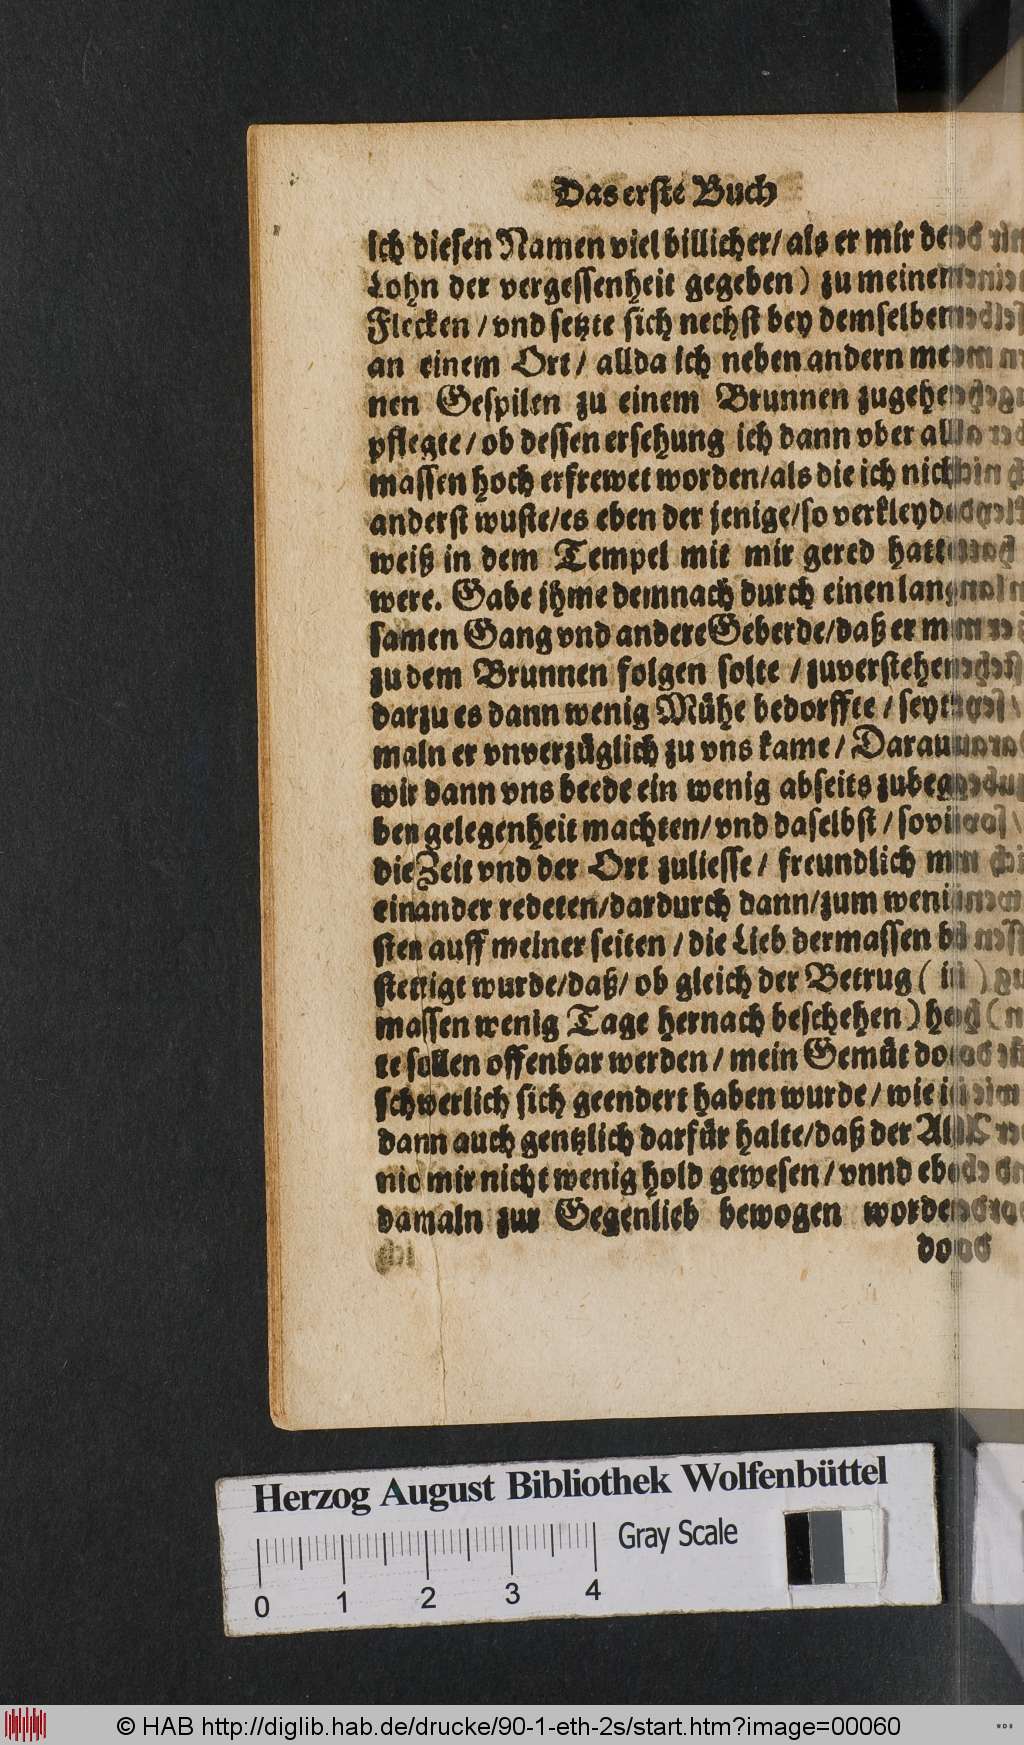 Das erste Buch
ich diesen Namen viel billicher/ als er mir den
Lohn der vergessenheit gegeben) zu meinem
Flecken / vnd setzte sich nechst bey demselben
an einem Ort / allda ich neben andern mei-
nen Gespilen zu einem Brunnen zugehen
pflegte / ob dessen ersehung ich dann vber all
massen hoch erfrewet worden/als die ich nicht
anderst wuste/es eben der jenige/so verkleyd-
weiß in dem Tempel mit mir gered hatte
were. Gabe ihme demnach durch einen lang-
samen Gang vnd andere Geberde/daß er mir
zu dem Brunnen folgen solte / zuverstehen
darzu es dann wenig Mühe bedorffte / seyt-
maln er vnverzüglich zu vns kame / Darauff
wir dann vns beede ein wenig abseits zubege-
ben gelegenheit machten/ vnd daselbst / soviel
die Zeit vnd der Ort zuliesse / freundlich mit
einander redeten/dardurch dann/zum wenig-
sten auff meiner seiten / die Lieb dermassen be-
stettigt wurde/daß/ ob gleich der Betrug (in
massen wenig Tage hernach beschehen) het-
te sollen offenbar werden / mein Gemüt doch
schwerlich sich geendert haben wurde / wie ich
dann auch gentzlich darfür halte/daß der Ala-
nio mir nicht wenig hold gewesen / vnnd eben
damaln zur Gegenlieb bewogen worden
doch
Herzog August Bibliothek Wolfenbüttel
Gray Scale
0 1 2 3 4
© HAB http://diglib.hab.de/drucke/90-1-eth-2s/start.htm?image=00060